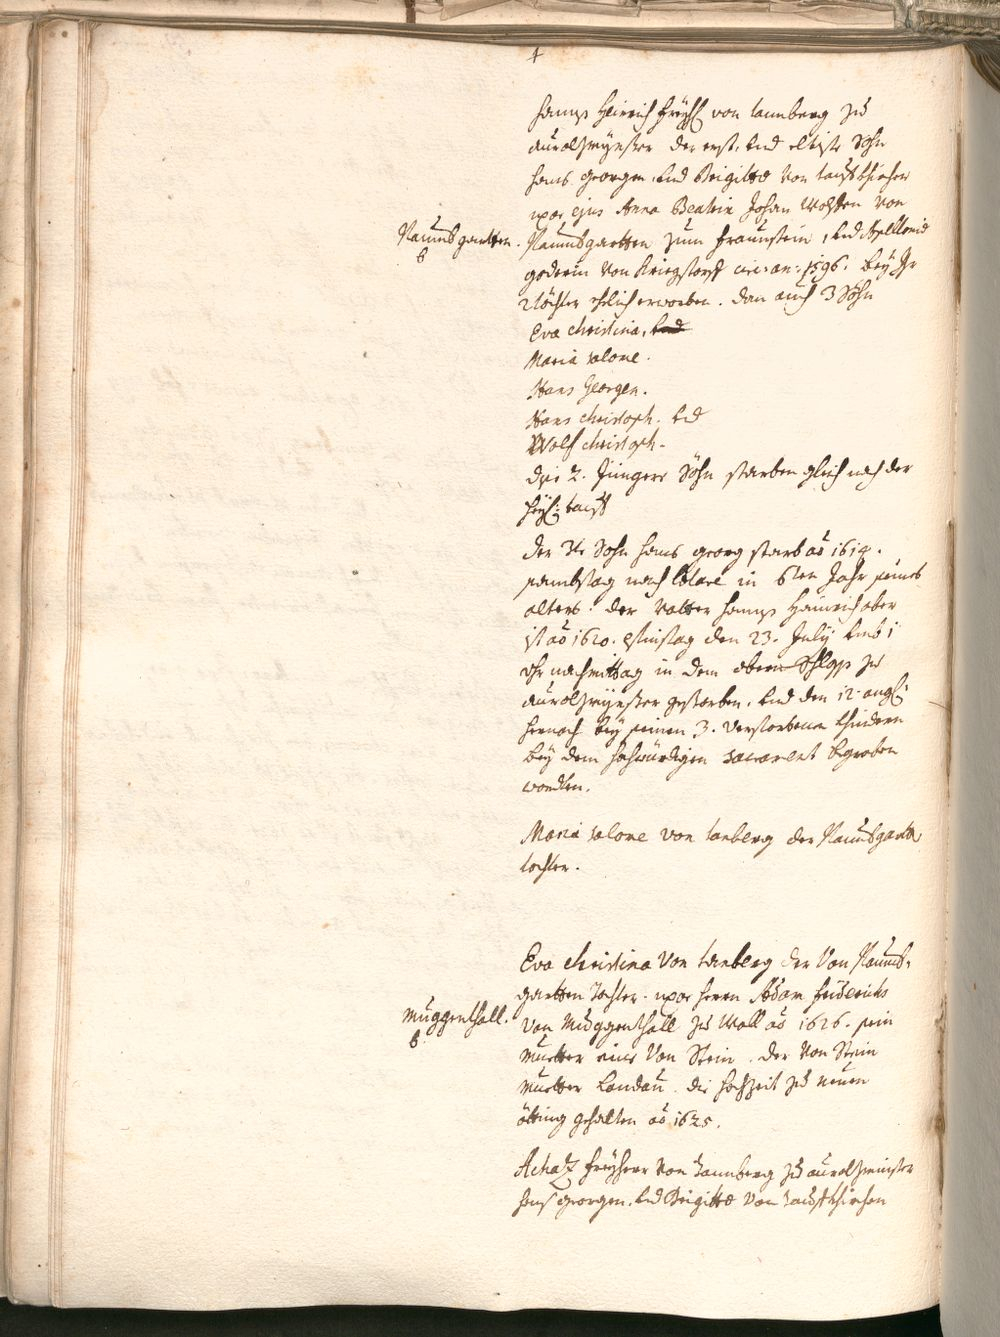 4
Hanns Heinrich Freyh: von Tannberg zu
Aurolzmünster der erst, und eltiste Sohn
Hans Georgen und Brigitta von Tauffkhirchen
uxor ejus Anna Beatrix Johan Wolffen von
Naumbsgartten.
6
Naumbsgartten zum Fraunstein, und Apollonia
goderin von Kriegstorff circ: an: 1596. bey Ihr
2 töchter ehrlich erworben. dan auch 3 Söhn
Eva Christina, und
Maria Salome.
Hans Georgen.
Hans Christoph. und
Wolf Christoph.
dise 2. Jüngere Söhn starben gleich nach der
heyl: tauff
der 3te Sohn Hans Georg starb ao 1614.
sambstag nach in 6ten Jahr seines
alters. der Vatter Hanns Hainrich aber
ist ao 1620. Erchtag den 23. July umb 1
Uhr nachmittag in dem obern Schloss zu
Aurolzmünster gestorben, und den 12 aug:
hernach bey seinen 3. verstorbenen khindern
bey dem hochwürdigen Sacrament begraben
worden.
Maria Salome von Tanberg der Naumbsgartt
tochter.
Eva Christina von Tanberg der von Naumbs-
gartten Tochter. uxor herrn Adam Friderichs
Muggenthall.
6
von Muggenthall zu Wall ao 1626. sein
Muetter eine von Stein. der von Stein
Muetter Landau. die hochzeit zu neuen
ötting gehalten ao 1625.
Achatz Freyherr von Tannberg zu Aurolzminster
Hans Georgen, und Brigitta von Tauffkhirchen